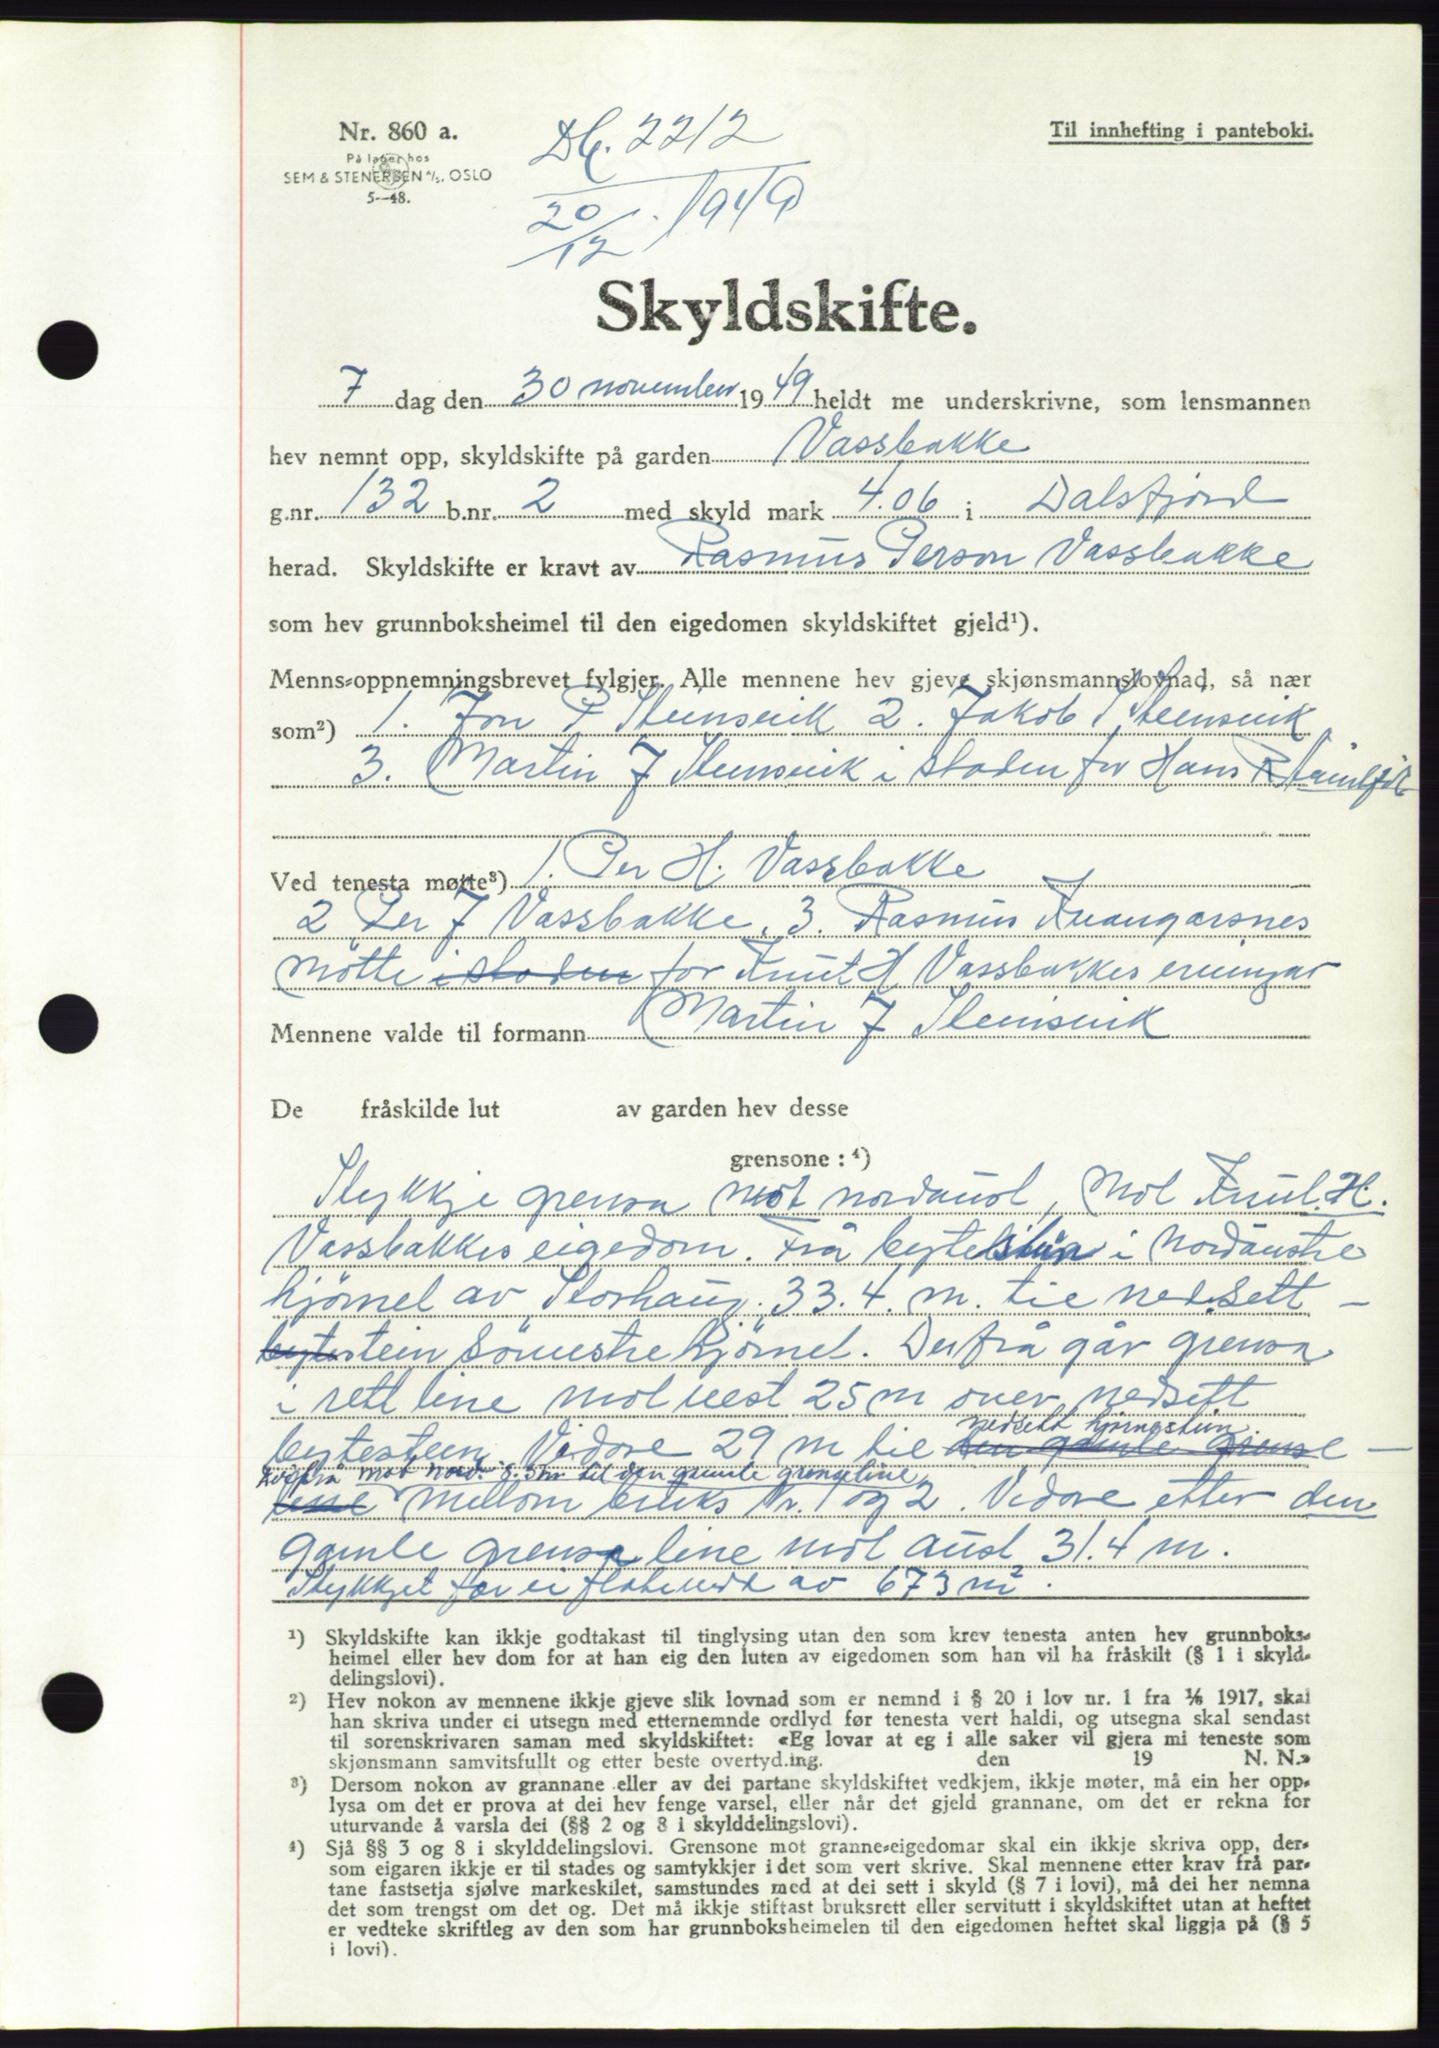 Nr. 860 a.
På lager hos
SEM & STENERSEN A/S, OSLO
5—48.
Db. 2212
20/12 . 1949
Til innhefting i panteboki.
Skyldskifte.
7 dag den 30 november 1949 heldt me underskrivne, som lensmannen
hev nemnt opp, skyldskifte på garden Vassbakke
g.nr. 132 b.nr. 2 med skyld mark 4.06 i Dalsfjord
herad. Skyldskifte er kravt av Rasmus Person Vassbakke
som hev grunnboksheimel til den eigedomen skyldskiftet gjeld¹).
Menns-oppnemningsbrevet fylgjer. Alle mennene hev gjeve skjønsmannslovnad, så nær
som²) 1. Jon P Steinsvik 2. Jakob Steinsvik
3. Martin J Steinsvik i staden for Hans R
Ved tenesta møtte³) 1. Per H. Vassbakke
2 Per J Vassbakke. 3. Rasmus Kvangarsnes
møtte i staden for Knut H Vassbakkes ervingar
Mennene valde til formann Martin J Steinsvik
De fråskilde lut av garden hev desse
grensone : ⁴)
Stykkje grensa mot nordaust, mot Knut. H.
Vassbakkes eigedom. Frå bytestein i nordaustre
hjørnel av Storhaug. 33.4. m. til nedsett –
bytestein søruestre hjørnel. Derfrå går grensa
i rett line mot vest 25 m over nedsett
nedsett hjørnestein
bytestein. Vidare 29 m til den gamle grense –
derfrå mot nord 8.3 m til den gamle grenseline
line mellom bruks Nr. 1 og 2. Vidare etter den
gamle grensa line mot aust 31.4 m.
Stykkjet før ei flatevidd av 673 m².
¹) Skyldskifte kan ikkje godtakast til tinglysing utan den som krev tenesta anten hev grunnboks-
heimel eller hev dom for at han eig den luten av eigedomen som han vil ha fråskilt (§ 1 i skyld-
delingslovi).
²) Hev nokon av mennene ikkje gjeve slik lovnad som er nemnd i § 20 i lov nr. 1 fra 1/6 1917, skal
han skriva under ei utsegn med etternemnde ordlyd før tenesta vert haldi, og utsegna skal sendast
til sorenskrivaren saman med skyldskiftet: «Eg lovar at eg i alle saker vil gjera mi teneste som
skjønsmann samvitsfullt og etter beste overtyding. den 19 N. N.»
³) Dersom nokon av grannane eller av dei partane skyldskiftet vedkjem, ikkje møter, må ein her opp-
lysa om det er prova at dei hev fenge varsel, eller når det gjeld grannane, om det er rekna for
uturvande å varsla dei (§§ 2 og 8 i skylddelingslovi).
⁴) Sjå §§ 3 og 8 i skylddelingslovi. Grensone mot granne-eigedomar skal ein ikkje skriva opp, der-
som eigaren ikkje er til stades og samtykkjer i det som vert skrive. Skal mennene etter krav frå par-
tane fastsetja sjølve markeskilet, samstundes med at dei sett i skyld (§ 7 i lovi), må dei her nemna
det som trengst om det og. Det må ikkje stiftast bruksrett eller servitutt i skyldskiftet utan at heftet
er vedteke skriftleg av den som har grunnboksheimelen til den eigedomen heftet skal liggja på (§ 5
i lovi).